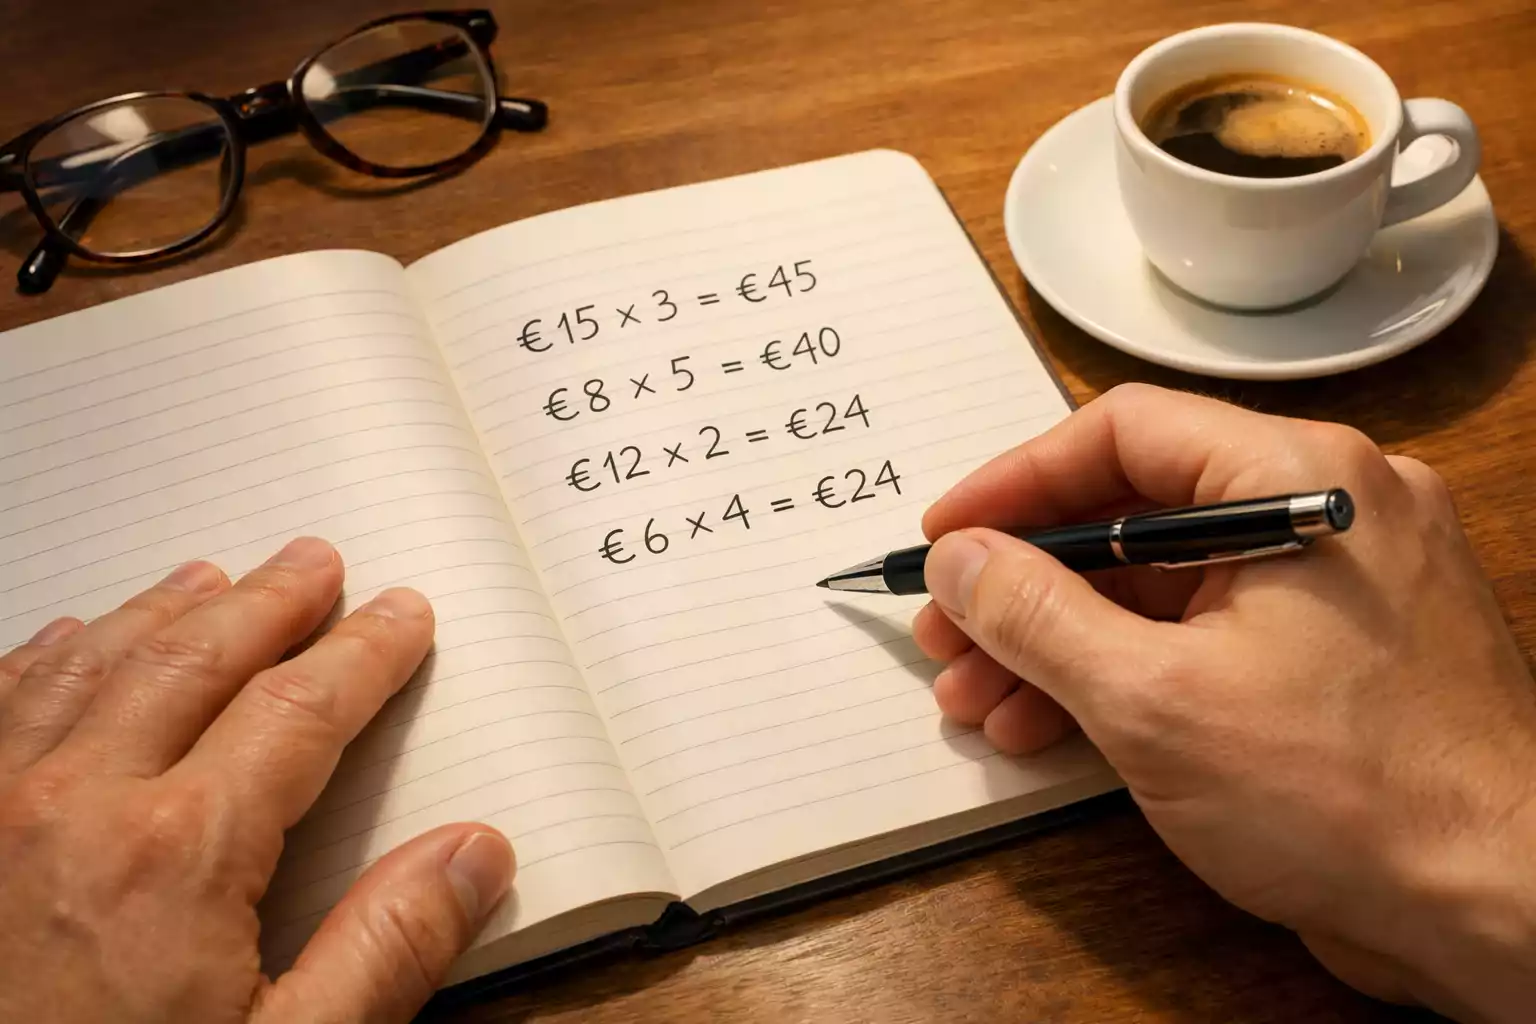 €15 × 3 = €45
€8 × 5 = €40
€12 × 2 = €24
€6 × 4 = €24